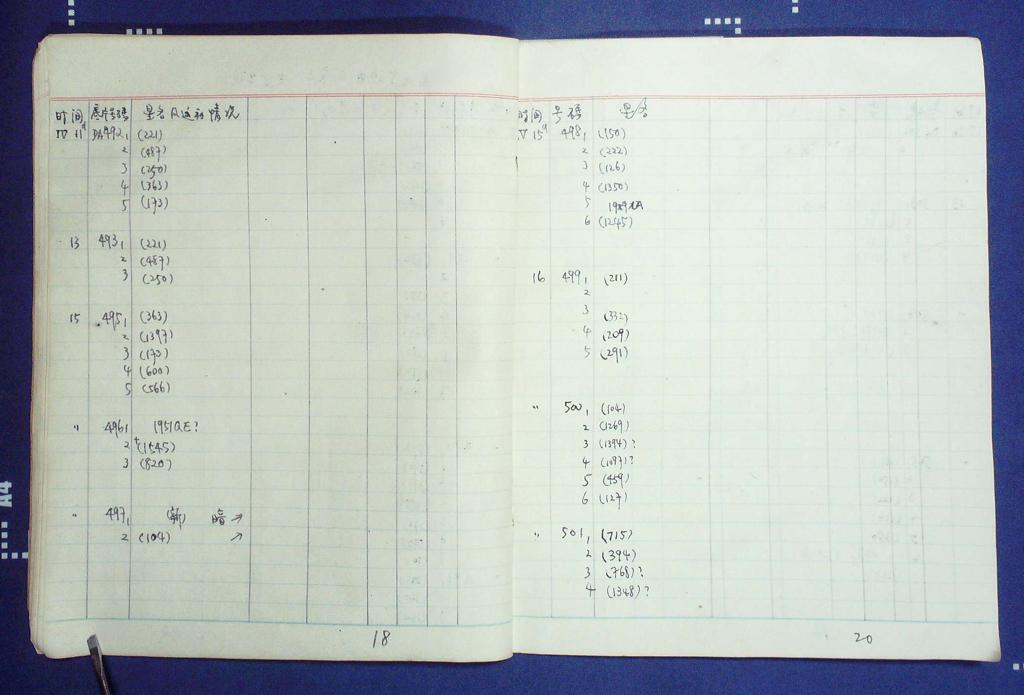 时间 底片号码 星名及运动情况
IV 11 PA492₁ (221)
2 (487)
3 (250)
4 (363)
5 (173)
13 493₁ (221)
2 (487)
3 (250)
15 495₁ (363)
2 (1397)
3 (173)
4 (600)
5 (566)
" 496₁ 1951QE?
2 (1545)
3 (820)
" 497₁ (新) 暗 ↗
2 (104) ↗
18
时间 号码 星名
IV 15 498₁ (150)
2 (222)
3 (126)
4 (1350)
5
6 (1245)
16 499₁ (211)
2
3 (332)
4 (209)
5 (291)
" 500₁ (104)
2 (1269)
3 (1394)?
4 (1097)?
5 (459)
6 (127)
" 501₁ (715)
2 (394)
3 (768)?
4 (1348)?
20
A4